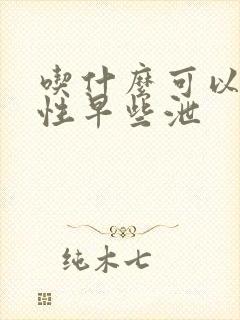 喫什麼可以
性早些泄
纯木七